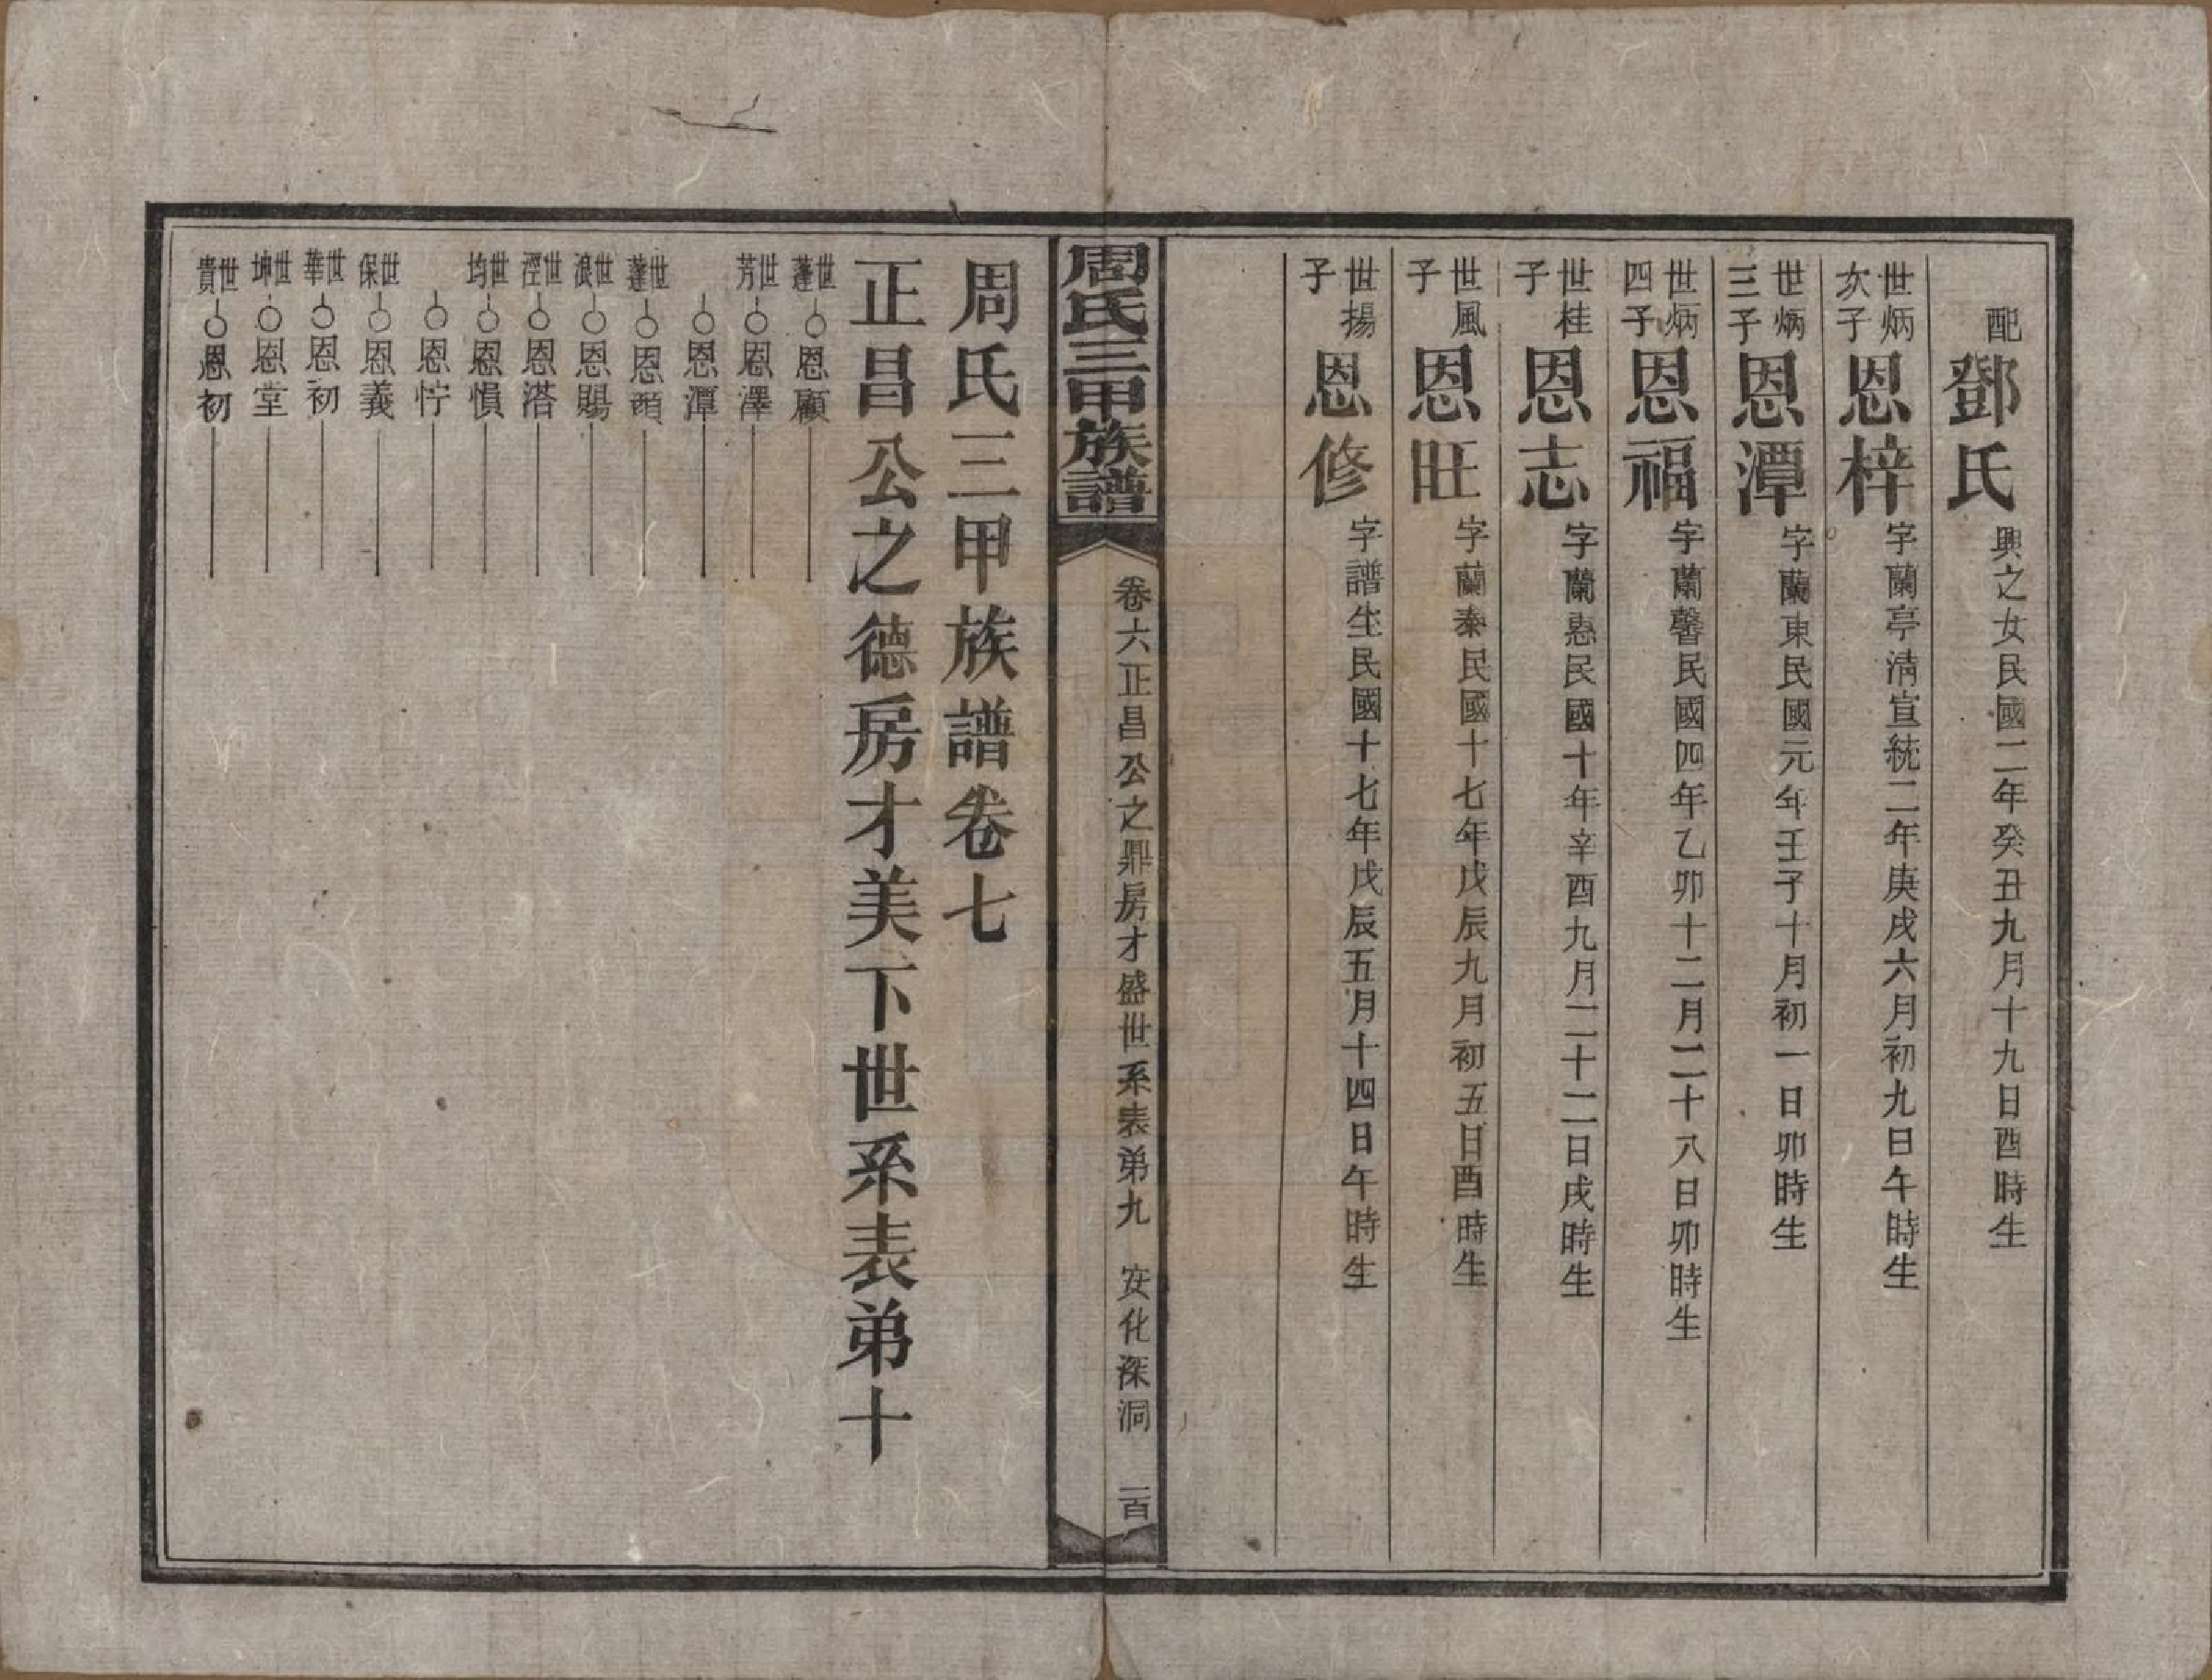 配鄧氏興之女民國二年癸丑九月十九日酉時生
世炳次子恩梓字蘭亭清宣統二年庚戌六月初九日午時生
世炳三子恩潭字蘭東民國元年壬子十月初一日卯時生
世炳四子恩福字蘭馨民國四年乙卯十二月二十八日卯時生
世桂子恩志字蘭惠民國十年辛酉九月二十二日戌時生
世風子恩旺字蘭秦民國十七年戊辰九月初五日酉時生
世揚子恩修字譜生民國十七年戊辰五月十四日午時生
周氏三甲族譜
卷六正昌公之鼎房才盛世系表弟九 安化深洞 一百
周氏三甲族譜卷七
正昌公之德房才美下世系表弟十
世蓬 恩顧
世芳 恩澤
恩潭
世蓬 恩頭
世浪 恩賜
世涇 恩溚
世均 恩慎
恩忊
世保 恩義
世華 恩初
世坤 恩堂
世貴 恩初